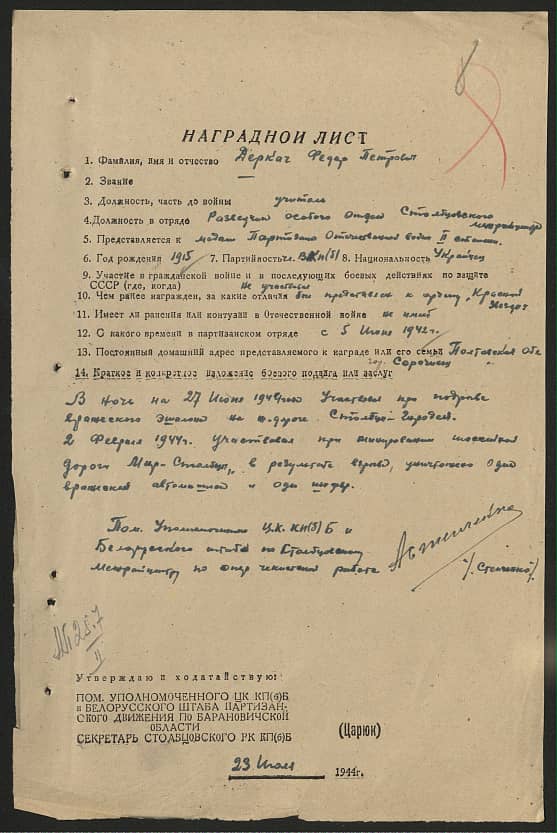 8
НАГРАДНОЙ ЛИСТ
1. Фамилия, имя и отчество Деркач Федор Петрович
2. Звание —
3. Должность, часть до войны учитель
4. Должность в отряде Разведчик особого отдела Столбцовского межрайцентра
5. Представляется к медали Партизана Отечественной войны II степени.
6. Год рождения 1915 7. Партийность чл. ВКП(б) 8. Национальность Украинец
9. Участие в гражданской войне и в последующих боевых действиях по защите
СССР (где, когда) не участвовал
10. Чем ранее награжден, за какие отличия был представлен к ордену „Красной Звезды
11. Имеет ли ранения или контузии в Отечественной войне не имеет
12. С какого времени в партизанском отряде с 5 Июня 1942г.
13. Постоянный домашний адрес представляемого к награде или его семьи Полтавская Обл.
Сорочинцы
14. Краткое и конкретное изложение боевого подвига или заслуг
В ночь на 27 Июня 194 года Участвовал при подрыве
вражеского эшелона на ж-дороге Столбцы-Городея.
2 Февраля 1944г. Участвовал при минировании шоссейной
дороги Мир-Столбцы, в результате взрыва, уничтожено одна
вражеская автомашина и один шофер.
Пом. Уполномоченного Ц.К. КП(б)Б и
Белорусского штаба по Столбцовскому
Межрайцентру по опер чекистской работе
/Стеченко/
№ 28.7
II
Утверждаю и ходатайствую:
ПОМ. УПОЛНОМОЧЕННОГО ЦК КП(б)Б
и БЕЛОРУССКОГО ШТАБА ПАРТИЗАН-
СКОГО ДВИЖЕНИЯ ПО БАРАНОВИЧСКОЙ
ОБЛАСТИ
СЕКРЕТАРЬ СТОЛБЦОВСКОГО РК КП(б)Б
(Царюк)
23 Июля 1944г.